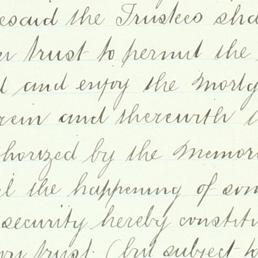 esaid the Trustees sha
trust to permit the
and enjoy the Mortg
rein and therewith
thorized by the Memor
the happening of som
security hereby constitu
trust (but subject to